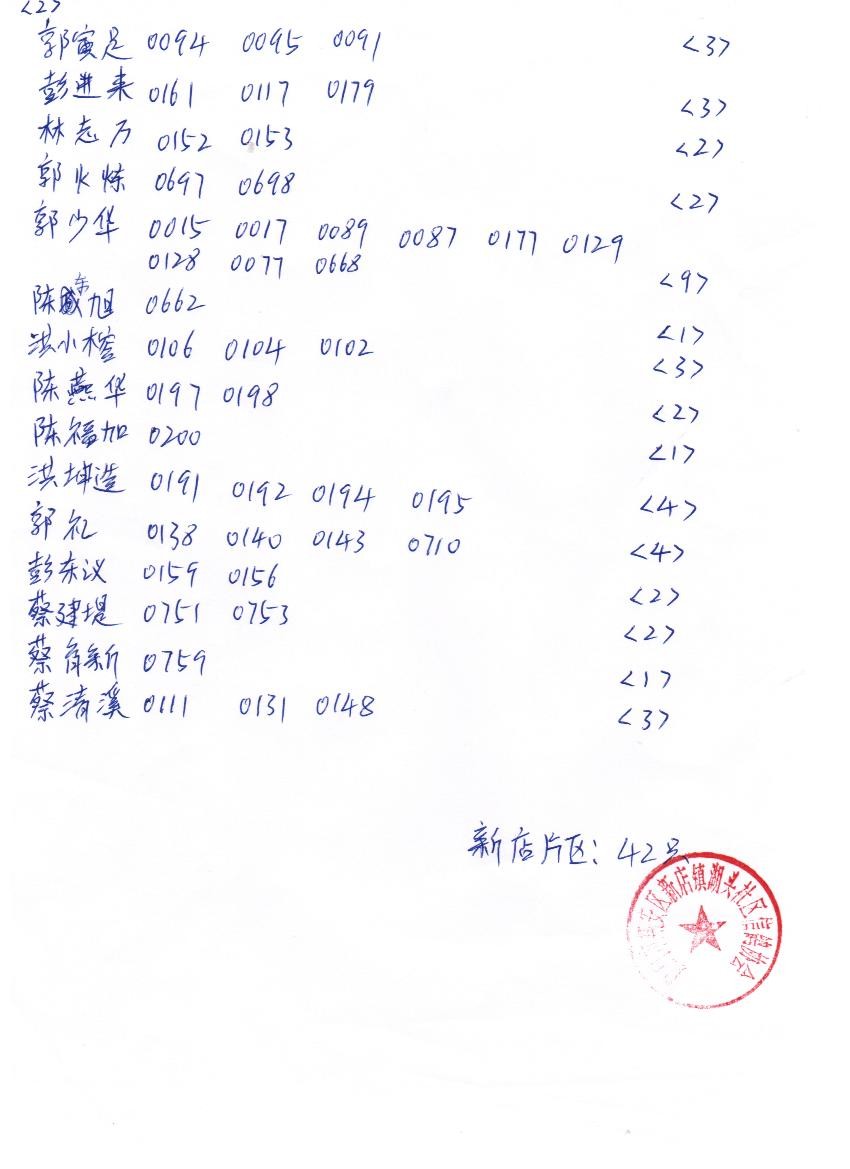 <2>
郭寅足 0094 0095 0091 <3>
彭进来 0161 0117 0179 <3>
林志万 0152 0153 <2>
郭火炼 0697 0698 <2>
郭少华 0015 0017 0089 0087 0177 0129
0128 0077 0668 <9>
陈东旭 0662 <1>
洪小榕 0106 0104 0102 <3>
陈燕华 0197 0198 <2>
陈福加 0200 <1>
洪坤造 0191 0192 0194 0195 <4>
郭礼 0138 0140 0143 0710 <4>
彭东议 0159 0156 <2>
蔡建堤 0751 0753 <2>
蔡育新 0759 <1>
蔡清溪 0111 0131 0148 <3>
新店片区: 42只
安区新店镇湖头社区